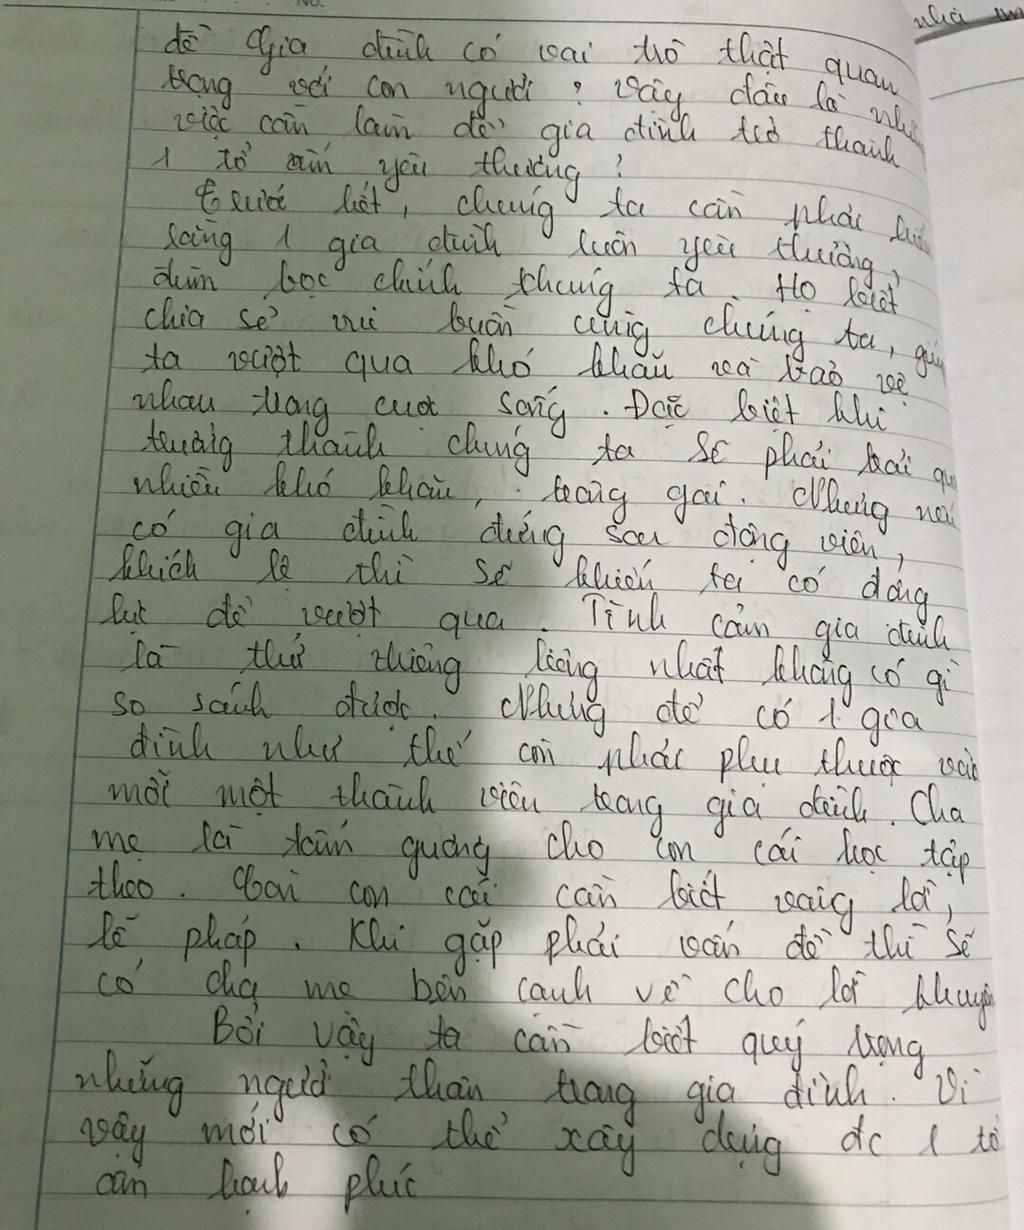 nhà
đề Gia đình có vai trò thật quan
trọng với con người ? Vậy đâu là những
việc cần làm để gia đình trở thành
1 tổ ấm yêu thương ?
Trước hết, chúng ta cần phải hiểu
rằng 1 gia đình luôn yêu thương,
đùm bọc chính chúng ta. Họ biết
chia sẻ vui buồn cùng chúng ta, giúp
ta vượt qua khó khăn và bảo vệ
nhau trong cuộc sống. Đặc biệt khi
trưởng thành chúng ta sẽ phải trải qua
nhiều khó khăn, trông gai. Nhưng nếu
có gia đình đứng sau động viên,
khích lệ thì sẽ khiến ta có động
lực để vượt qua. Tình cảm gia đình
là thứ thiêng liêng nhất không có gì
so sánh được. Nhưng để có 1 gia
đình như thế còn phải phụ thuộc vào
mỗi một thành viên trong gia đình. Cha
mẹ là tấm gương cho con cái học tập
theo. Còn con cái cần biết vâng lời,
lễ phép. Khi gặp phải vấn đề thì sẽ
có cha mẹ bên cạnh về cho lời khuyên
Bởi vậy ta cần biết quý trọng
những người thân trong gia đình. Vì
vậy mới có thể xây dựng đc 1 tổ
ấm hạnh phúc